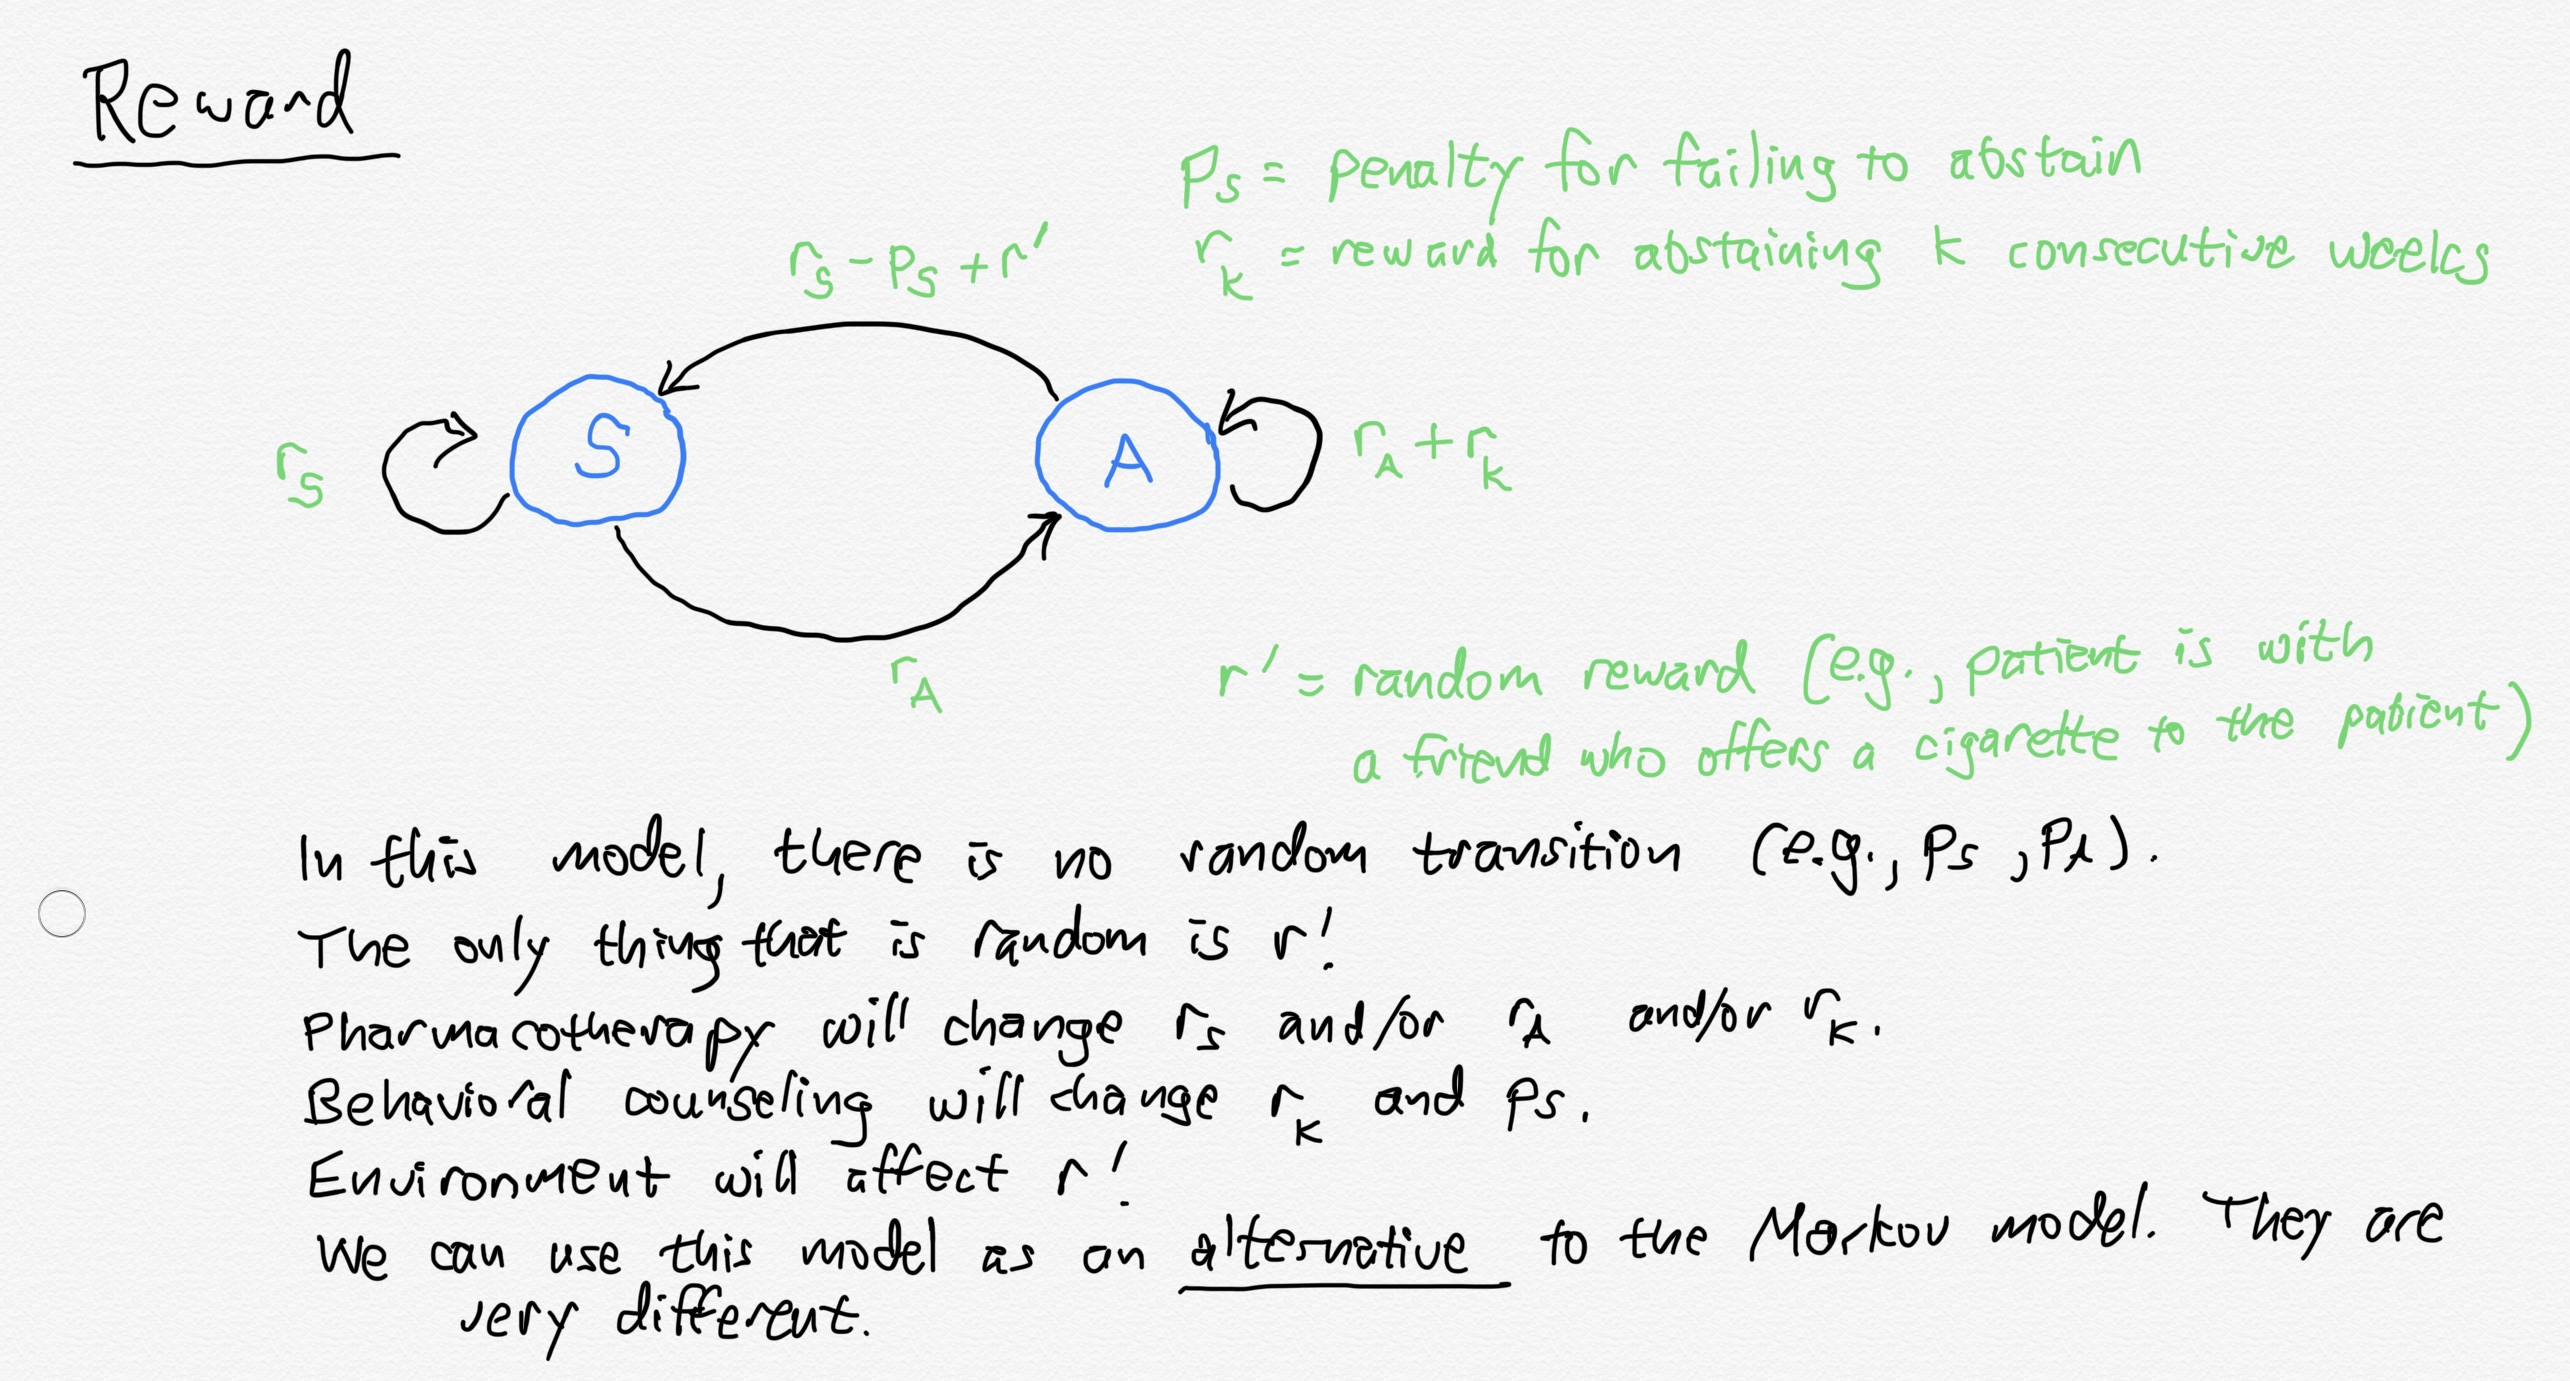 Reward
Ps = penalty for failing to abstain
rk = reward for abstaining k consecutive weeks
rs - Ps + r'
rs
S
A
rA + rk
rA
r' = random reward (e.g., patient is with
a friend who offers a cigarette to the patient)
In this model, there is no random transition (e.g., Ps, PA).
The only thing that is random is r'.
Pharmacotherapy will change rs and/or rA and/or rk.
Behavioral counseling will change rk and Ps.
Environment will affect r'.
We can use this model as an alternative to the Markov model. They are
very different.